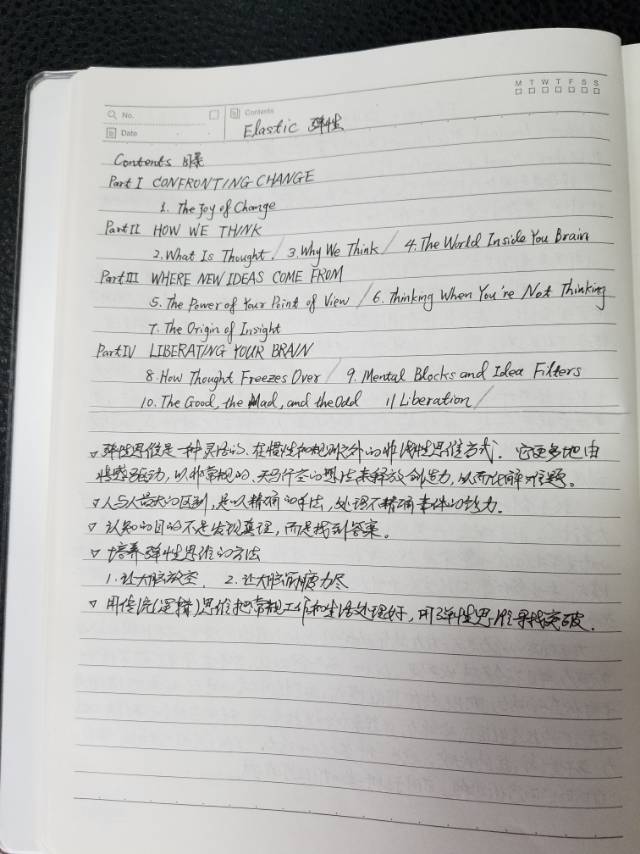 M T W T F S S
No.
Contents
Elastic 弹性
Date
Contents 目录
Part I CONFRONTING CHANGE
1. The Joy of Change
Part II HOW WE THINK
2. What Is Thought / 3. Why We Think / 4. The World Inside You Brain
Part III WHERE NEW IDEAS COME FROM
5. The Power of Your Point of View / 6. Thinking When You're Not Thinking
7. The Origin of Insight
Part IV LIBERATING YOUR BRAIN
8. How Thought Freezes Over / 9. Mental Blocks and Idea Filters
10. The Good, the Mad, and the Odd 11 Liberation /
▽ 弹性思维是一种灵活的、在惯性和规则之外的非线性思维方式. 它更多地由
情感驱动, 以非常规的、天马行空的想法来释放创造力, 从而找解难题。
▽ 人与人最大的区别, 是以精确的手法, 处理不精确事件的能力.
▽ 认知的目的不是发现真理, 而是找到答案。
▽ 培养弹性思维的方法
1. 让大脑放空. 2. 让大脑筋疲力尽
▽ 用传统(逻辑)思维把常规工作和生活处理好, 用弹性思维寻找突破.